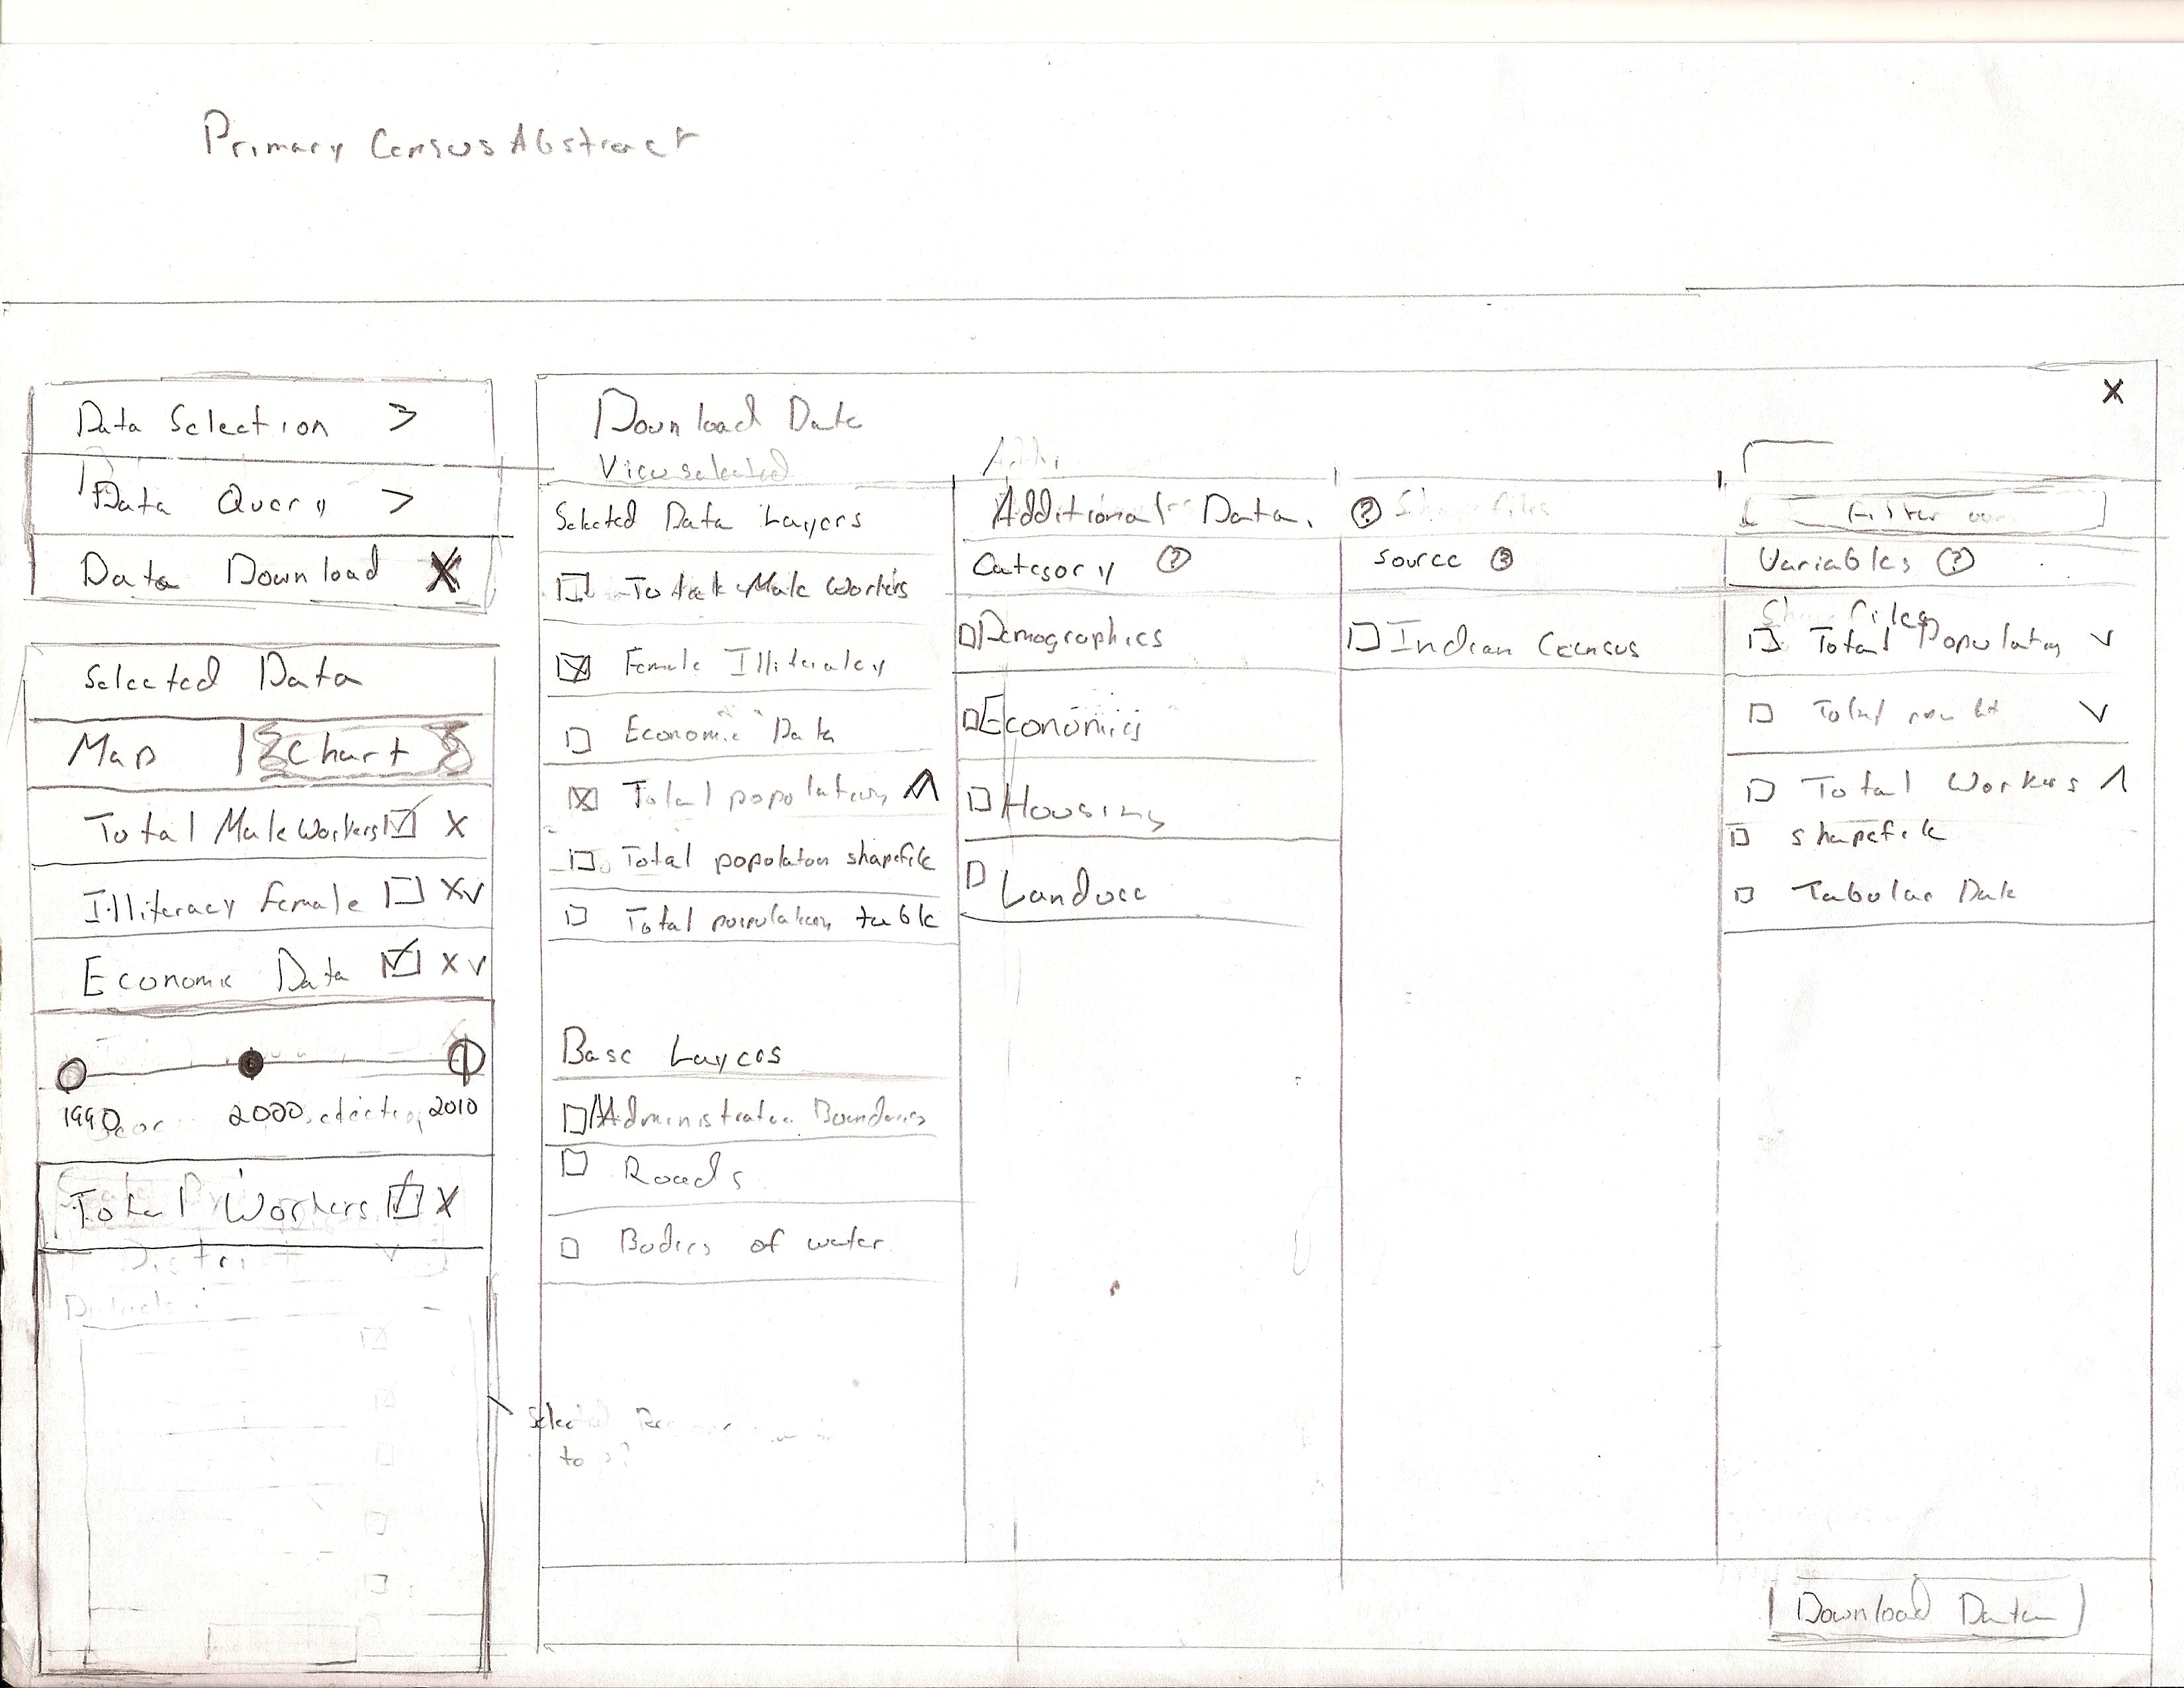 Primary Census Abstract
Data Selection >
Data Query >
Data Download X
Selected Data
Map | Chart
Total Male Workers X
Illiteracy Female X v
Economic Data X v
1990 2000 2010
Total Workers X
District v
Download Data X
View selected
Selected Data Layers
Total Male Workers
Female Illiteracy
Economic Data
Total population ^
Total population shapefile
Total population table
Base Layers
Administrative Boundaries
Roads
Bodies of water
to ?
Additional Data. ? Shapefiles
Category ?
Demographics
Economics
Housing
Landuse
Source ?
Indian Census
Filter
Variables ?
Total Population v
Total v
Total Workers ^
shapefile
Tabular Data
Download Data